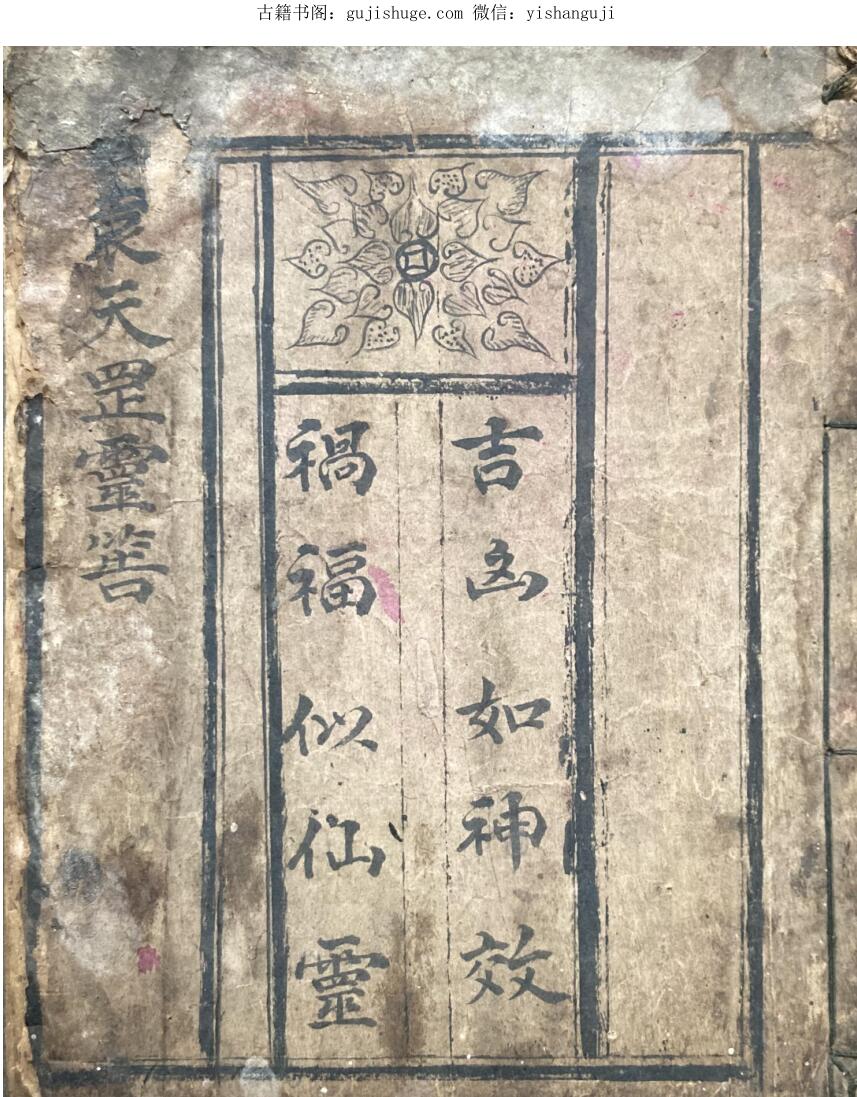 古籍书阁：gujishuge.com 微信：yishanguji
吉凶如神效
禍福似仙靈
袁天罡靈筶